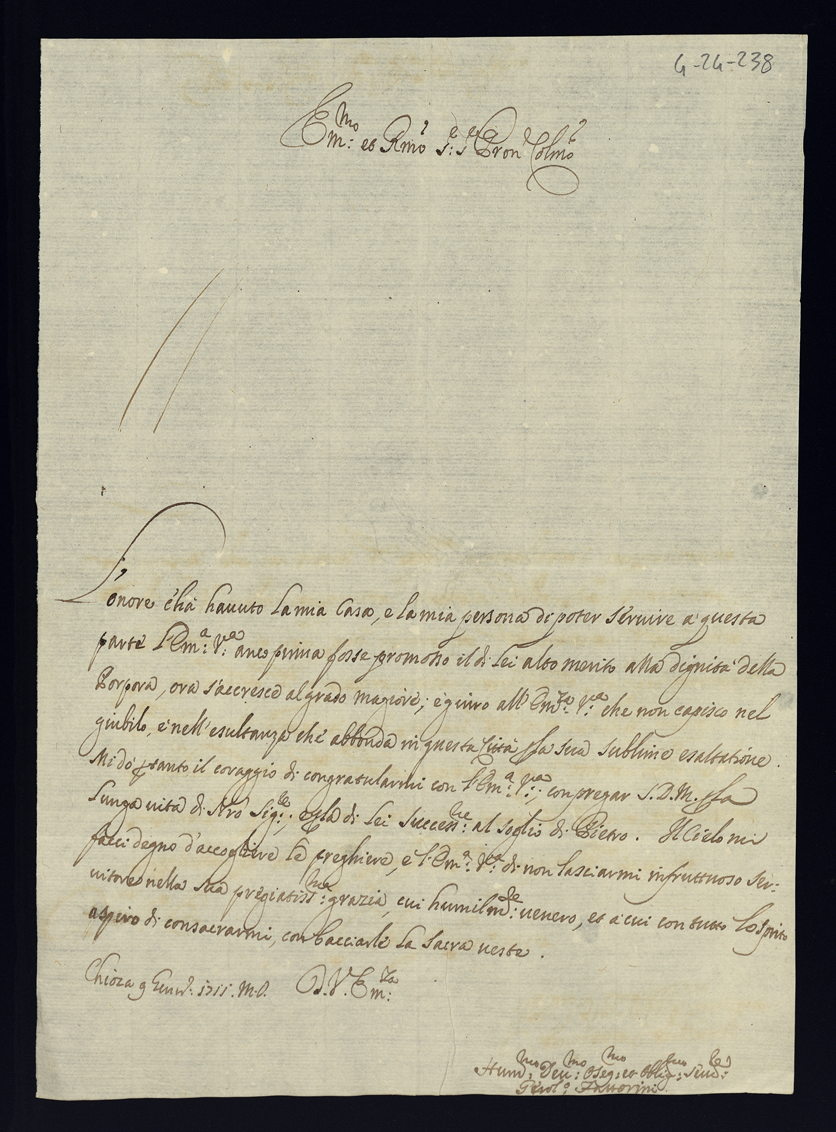 4-24-238
Em:mo et Rmo s:e s:e Pron Colmo
L'onore c'hà hauuto la mia Casa, e la mia persona di poter seruire à questa
parte l'Em:a V:a anco prima fosse promosso il di Lei alto merito alla dignità della
Porpora, ora s'accresce al grado magiore; e giuro all' V:a che non capisco nel
giubilo, e nell'esultanza che abbonda in questa Città la sua sublime esaltatione.
Mi dò tanto il coraggio di congratularmi con l'Em:a V:a; con pregar S.D.M. la
lunga uita di Sig:re, e la di Lei succes:ne al soglio di Pietro. Il Cielo mi
facci degno d'accogliere le preghiere, e l'Em:a V:a di non lasciarmi infruttuoso ser-
uitore nella sua pregiatiss:ma grazia, cui humilm:te uenero, et à cui con tutto lo spirito
aspiro di consacrarmi, con bacciarle la sacra ueste.
Chioza 9 Genr. 1711. M.V. D.V.Em:za
Hum:mo Deu:mo Oseq:mo et Oblig:mo Seru:re